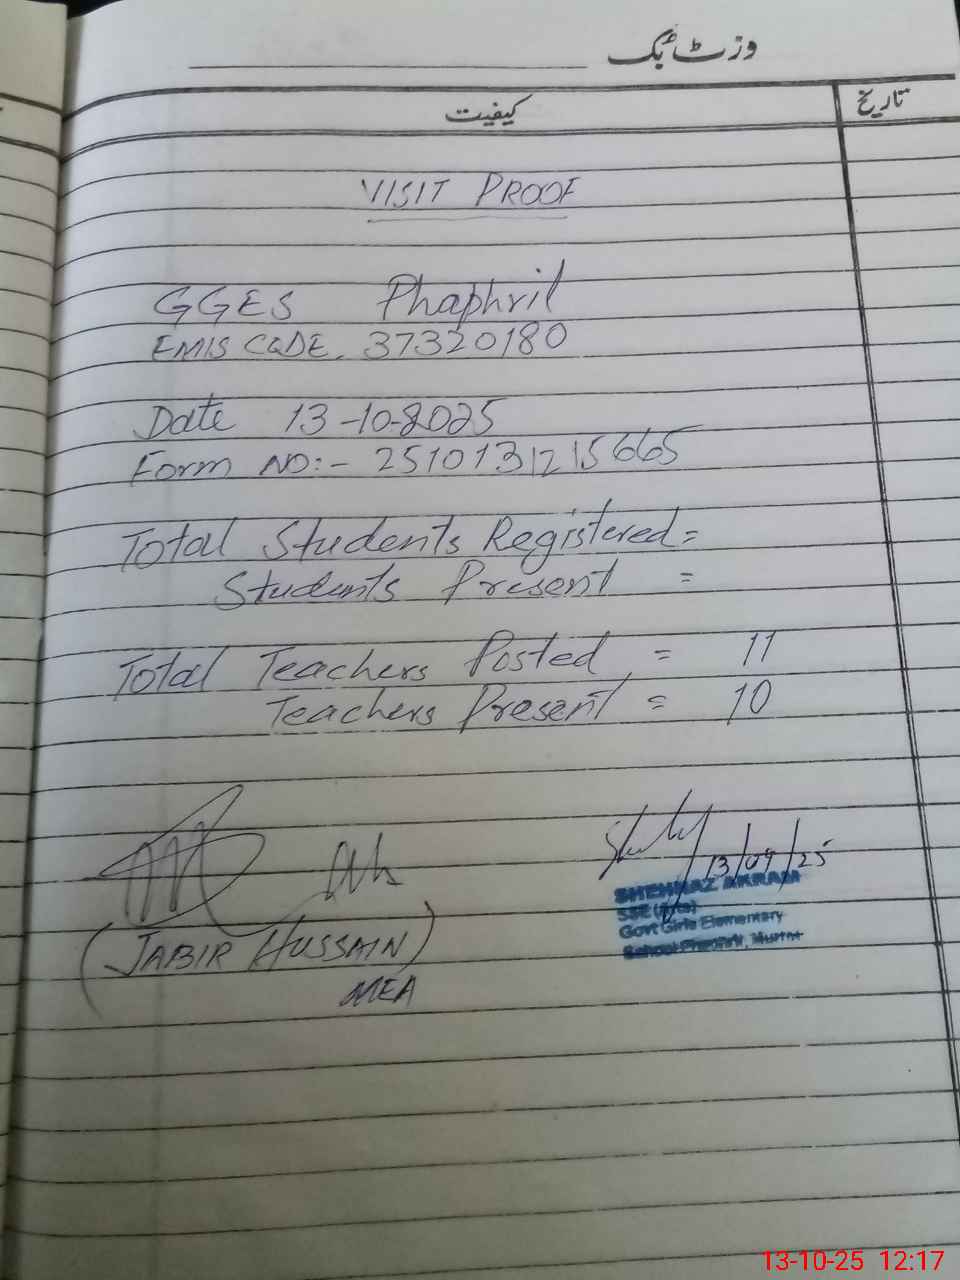 وزٹ بک
کیفیت
تاریخ
VISIT PROOF
GGES Phaphril
EMIS CODE. 37320180
Date 13-10-2025
Form NO:- 2510131215665
Total Students Registered=
Students Present =
Total Teachers Posted = 11
Teachers Present = 10
13/09/25
SHEHNAZ AKRAM
SSE (Arts)
Govt Girls Elementary
School
(JABIR HUSSAIN)
MEA
13-10-25 12:17